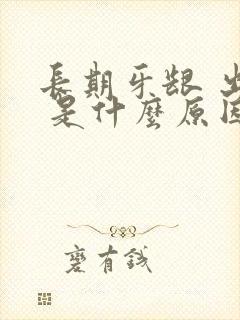 長期牙龈 出
是什麼原因
有錢